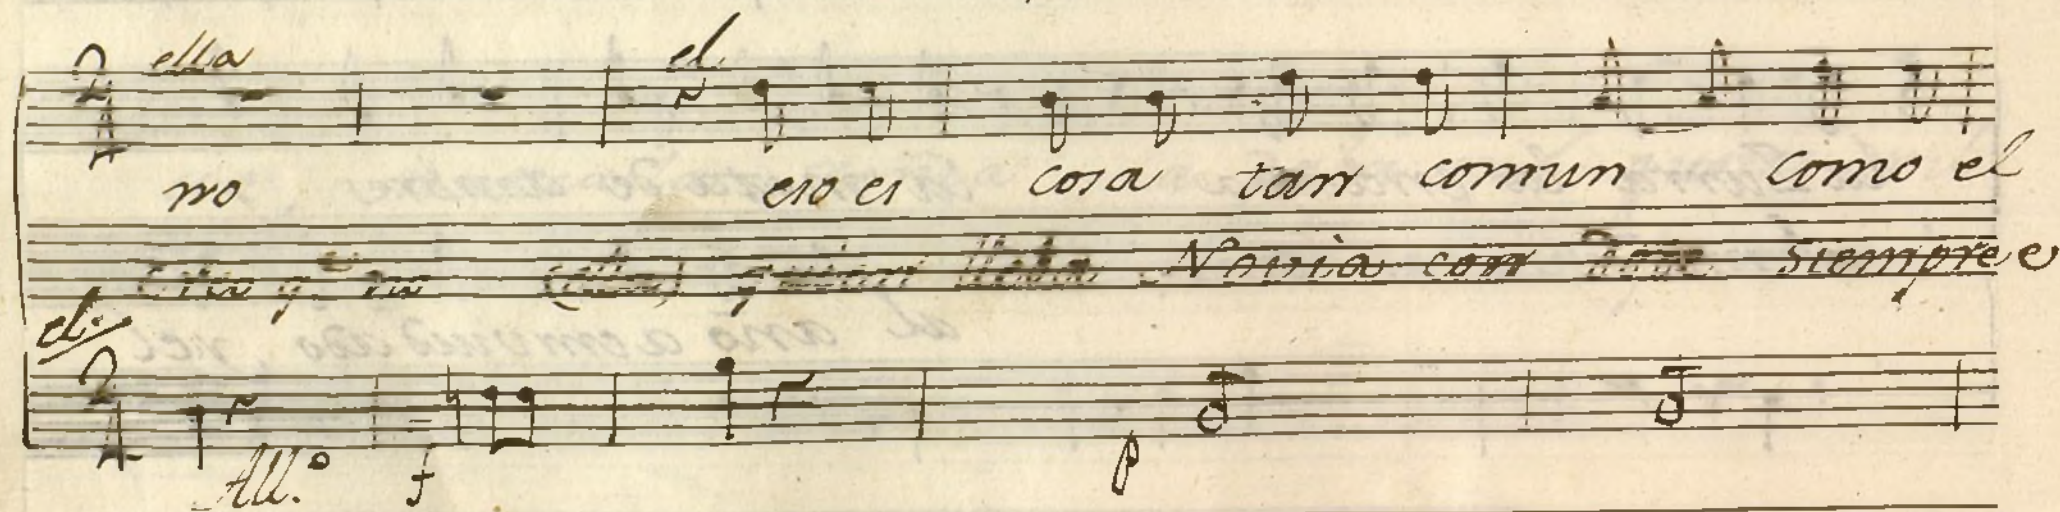 ella el.
no eso es cosa tan comun como el
Novia con siempre e
el.
All.o f p